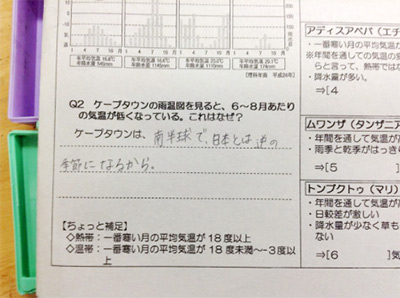 1 4 7 10月
1 4 7 10月
1 4 7 10月
1 4 7 10月
年平均気温
年降水量
年平均気温
年降水量 1145mm
年平均気温
年平均気温
【理科年表 平成24年】
Q2 ケープタウンの雨温図を見ると、6～8月あたり
の気温が低くなっている。これはなぜ?
ケープタウンは、南半球で、日本とは逆の
季節になるから。
【ちょっと補足】
◇熱帯:一番寒い月の平均気温が 18 度以上
◇温帯:一番寒い月の平均気温が 18 度未満～-3 度以
上
アディスアベバ(エチ
・一番寒い月の平均気
※年間を通しての気温の
らと言って、熱帯では
・降水量が多い。
⇒[4
ムワンザ(タンザニア
・年間を通して気温が
・雨季と乾季がはっきり
⇒[5
トンブクトゥ(マリ)
・年間を通して気温が
・日較差が激しい
・降水量が少なく草も
ない
⇒[6 ]気